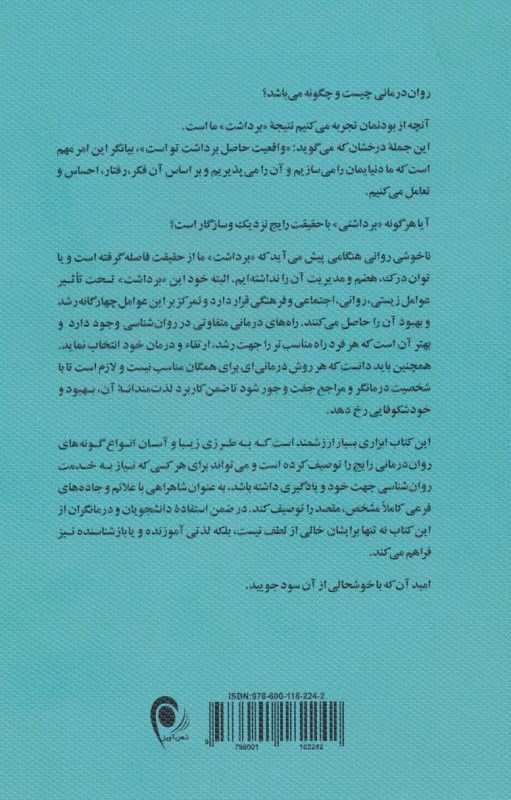 روان‌درمانی چیست و چگونه می‌باشد؟
آنچه از بودنمان تجربه می‌کنیم نتیجهٔ «برداشت» ما است.
این جملهٔ درخشان که می‌گوید: «واقعیت حاصل برداشت تو است»، بیانگر این امر مهم
است که ما دنیایمان را می‌سازیم و آن را می‌پذیریم و بر اساس آن فکر، رفتار، احساس و
تعامل می‌کنیم.
آیا هرگونه «برداشتی» با حقیقت رایج نزدیک و سازگار است؟
ناخوشی روانی هنگامی پیش می‌آید که «برداشت» ما از حقیقت فاصله گرفته است و یا
توان درک، هضم و مدیریت آن را نداشته‌ایم. البته خود این «برداشت» تحت تأثیر
عوامل زیستی، روانی، اجتماعی و فرهنگی قرار دارد و تمرکز بر این عوامل چهارگانه رشد
و بهبود آن را حاصل می‌کنند. راه‌های درمانی متفاوتی در روان‌شناسی وجود دارد و
بهتر آن است که هر فرد راه مناسب‌تر را جهت رشد، ارتقاء و درمان خود انتخاب نماید.
همچنین باید دانست که هر روش درمانی ای برای همگان مناسب نیست و لازم است تا با
شخصیت درمانگر و مراجع جفت و جور شود تا ضمن کاربرد لذت‌مندانهٔ آن، بهبود و
خودشکوفایی رخ دهد.
این کتاب ابزاری بسیار ارزشمند است که به طرزی زیبا و آسان انواع گونه‌های
روان‌درمانی رایج را توصیف کرده است و می‌تواند برای هر کسی که نیاز به خدمت
روان‌شناسی جهت خود و یادگیری داشته باشد، به عنوان شاهراهی با علائم و جاده‌های
فرعی کاملاً مشخص، مقصد را توصیف کند. در ضمن استفادهٔ دانشجویان و درمانگران از
این کتاب نه تنها برایشان خالی از لطف نیست، بلکه لذتی آموزنده و یا بازشناسنده نیز
فراهم می‌کند.
امید آن که با خوشحالی از آن سود جویید.
ISBN:978-600-118-224-2
9 786001 182242
ذهن‌آویز